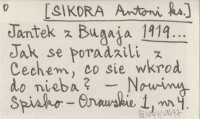 [SIKORA Antoni ks.]
Jantek z Bugaja 1919...
Jak se poradzili z
Cechem, co sie wkrod
do nieba? – Nowiny
Spisko – Orawskie 1, nr 4.